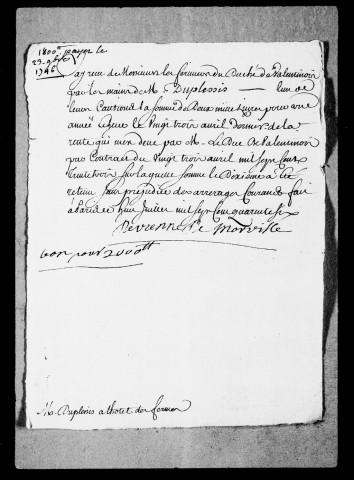 1800ᵗᵗ payé le
23. 9bre
1746
ay receu de Messieurs les fermiers du Duché de Valentinois
par les mains de M. Duplessis — l'un de
leurs Cautions la somme de Deux mille livres pour une
année échue le vingt trois avril dernier de la
rente qui m'en deue par M. le Duc de Valentinois
par Contrat du vingt trois avril mil sept cens
trente trois sur laquelle somme le Dixieme a été
retenu sans prejudice des arrerages Courans fait
a Paris ce huit Juillet mil sept cens quarante six
De Vienne De Morville
bon pour 2000ᵗᵗ
M. Duplessis a l'hotel des fermes